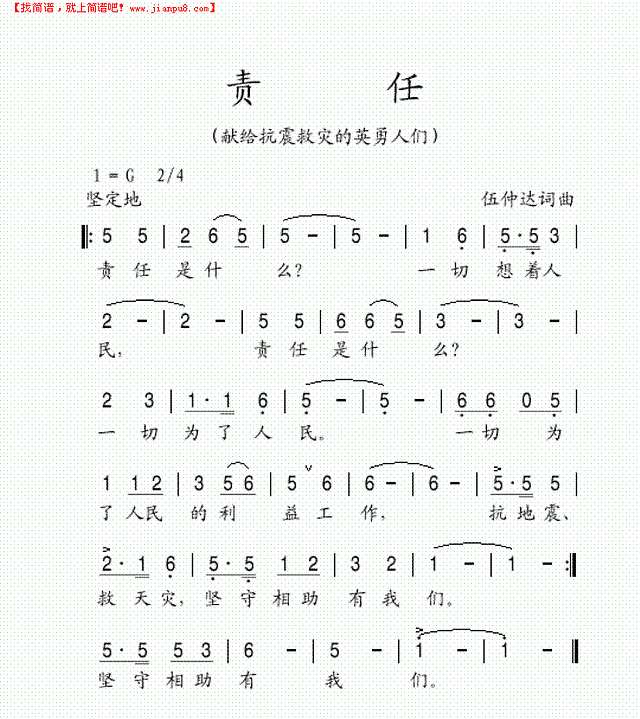 【找简谱，就上简谱吧! www.jianpu8.com】
责 任
(献给抗震救灾的英勇人们)
1 = G 2/4
坚定地 伍仲达词曲
5 5 | 2 6 5 | 5 - | 5 - | 1 6 | 5 · 5 3 |
责 任 是 什 么? 一 切 想 着 人
2 - | 2 - | 5 5 | 6 6 5 | 3 - | 3 - |
民, 责 任 是 什 么?
2 3 | 1 · 1 6 | 5 - | 5 - | 6 6 0 5 |
一 切 为 了 人 民。 一 切 为
1 1 2 | 3 5 6 | 5 6 | 6 - | 6 - | 5 · 5 5 |
了 人 民 的 利 益 工 作, 抗 地 震、
2 · 1 6 | 5 · 5 1 2 | 3 2 | 1 - | 1 - :|
救 天 灾, 坚 守 相 助 有 我 们。
5 · 5 5 3 | 6 - | 5 - | 1 - | 1 - ‖
坚 守 相 助 有 我 们。